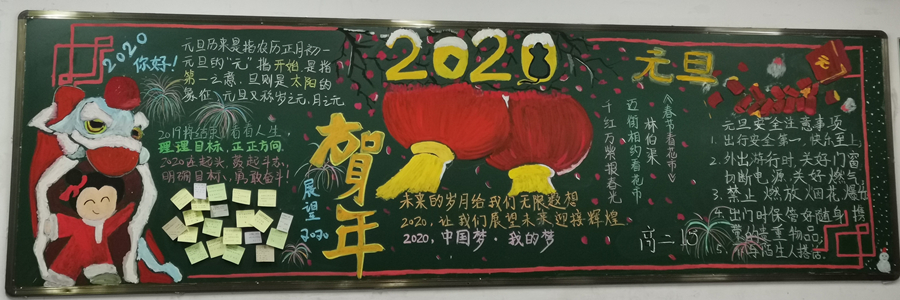 2020
你好!
元旦历来是指农历正月初一
元旦的“元”指开始,是指
第一之意,旦则是太阳的
象征,元旦又称岁之元,月之元
2019将结束,看看人生,
理理目标、正正方向.
2020在起头,鼓起斗志,
明确目标、勇敢奋斗!
贺年
展望2020
2020
未来的岁月给我们无限遐想
2020,让我们展望未来迎接辉煌.
2020,中国梦·我的梦
元旦
《春节看花市》
林伯渠
迈街相约看花市
千红万紫报春光
高二15
元旦安全注意事项
1.出行安全第一,快乐至上
2.外出游行时,关好门窗
切断电源,关好燃气
3.禁止燃放烟花,爆竹
4.出门时保管好随身携
带的贵重物品;
5.陌生人搭话.